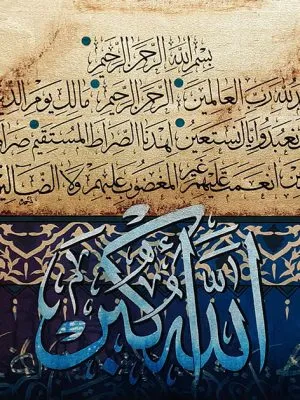 بسم الله الرحمن الرحيم
لله رب العالمين الرحمن الرحيم مالك يوم الدين
نعبد وإياك نستعين اهدنا الصراط المستقيم
أنعمت عليهم غير المغضوب عليهم ولا الضالين
الله أكبر